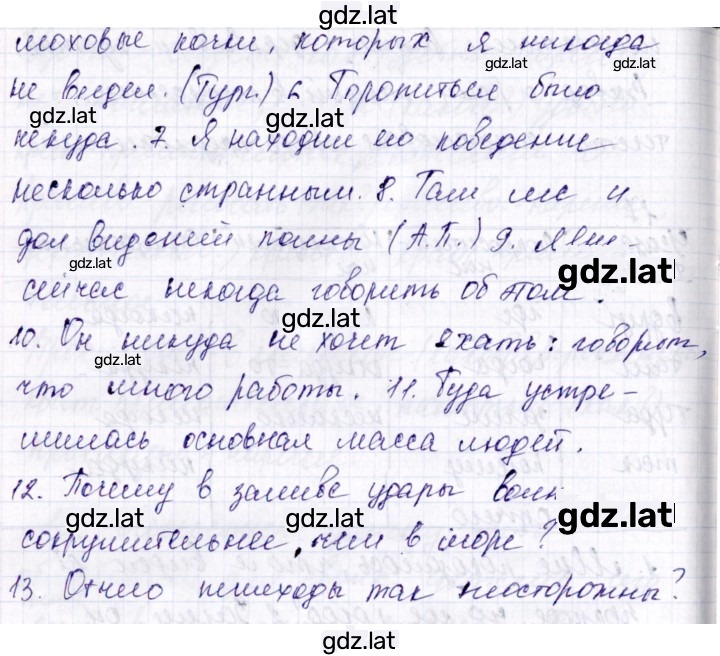 gdz.lat
моховые кочки, которых я никогда
gdz.lat gdz.lat
не видел. (Тург.) 6 Торопиться было
некуда. 7. Я находил его поведение
gdz.lat
несколько странным. 8. Там лес и
дол видений полны (А.П.) 9. Мне
gdz.lat
сейчас некогда говорить об этом.
gdz.lat
10. Он никуда не хочет ехать: говорит,
gdz.lat
что много работы. 11. Туда устре-
милась основная масса людей.
gdz.lat
12. Почему в заливе удары волн
gdz.lat gdz.lat gdz.lat
сокрушительнее, чем в море?
gdz.lat
13. Отчего пешеходы так неосторожны?
gdz.lat